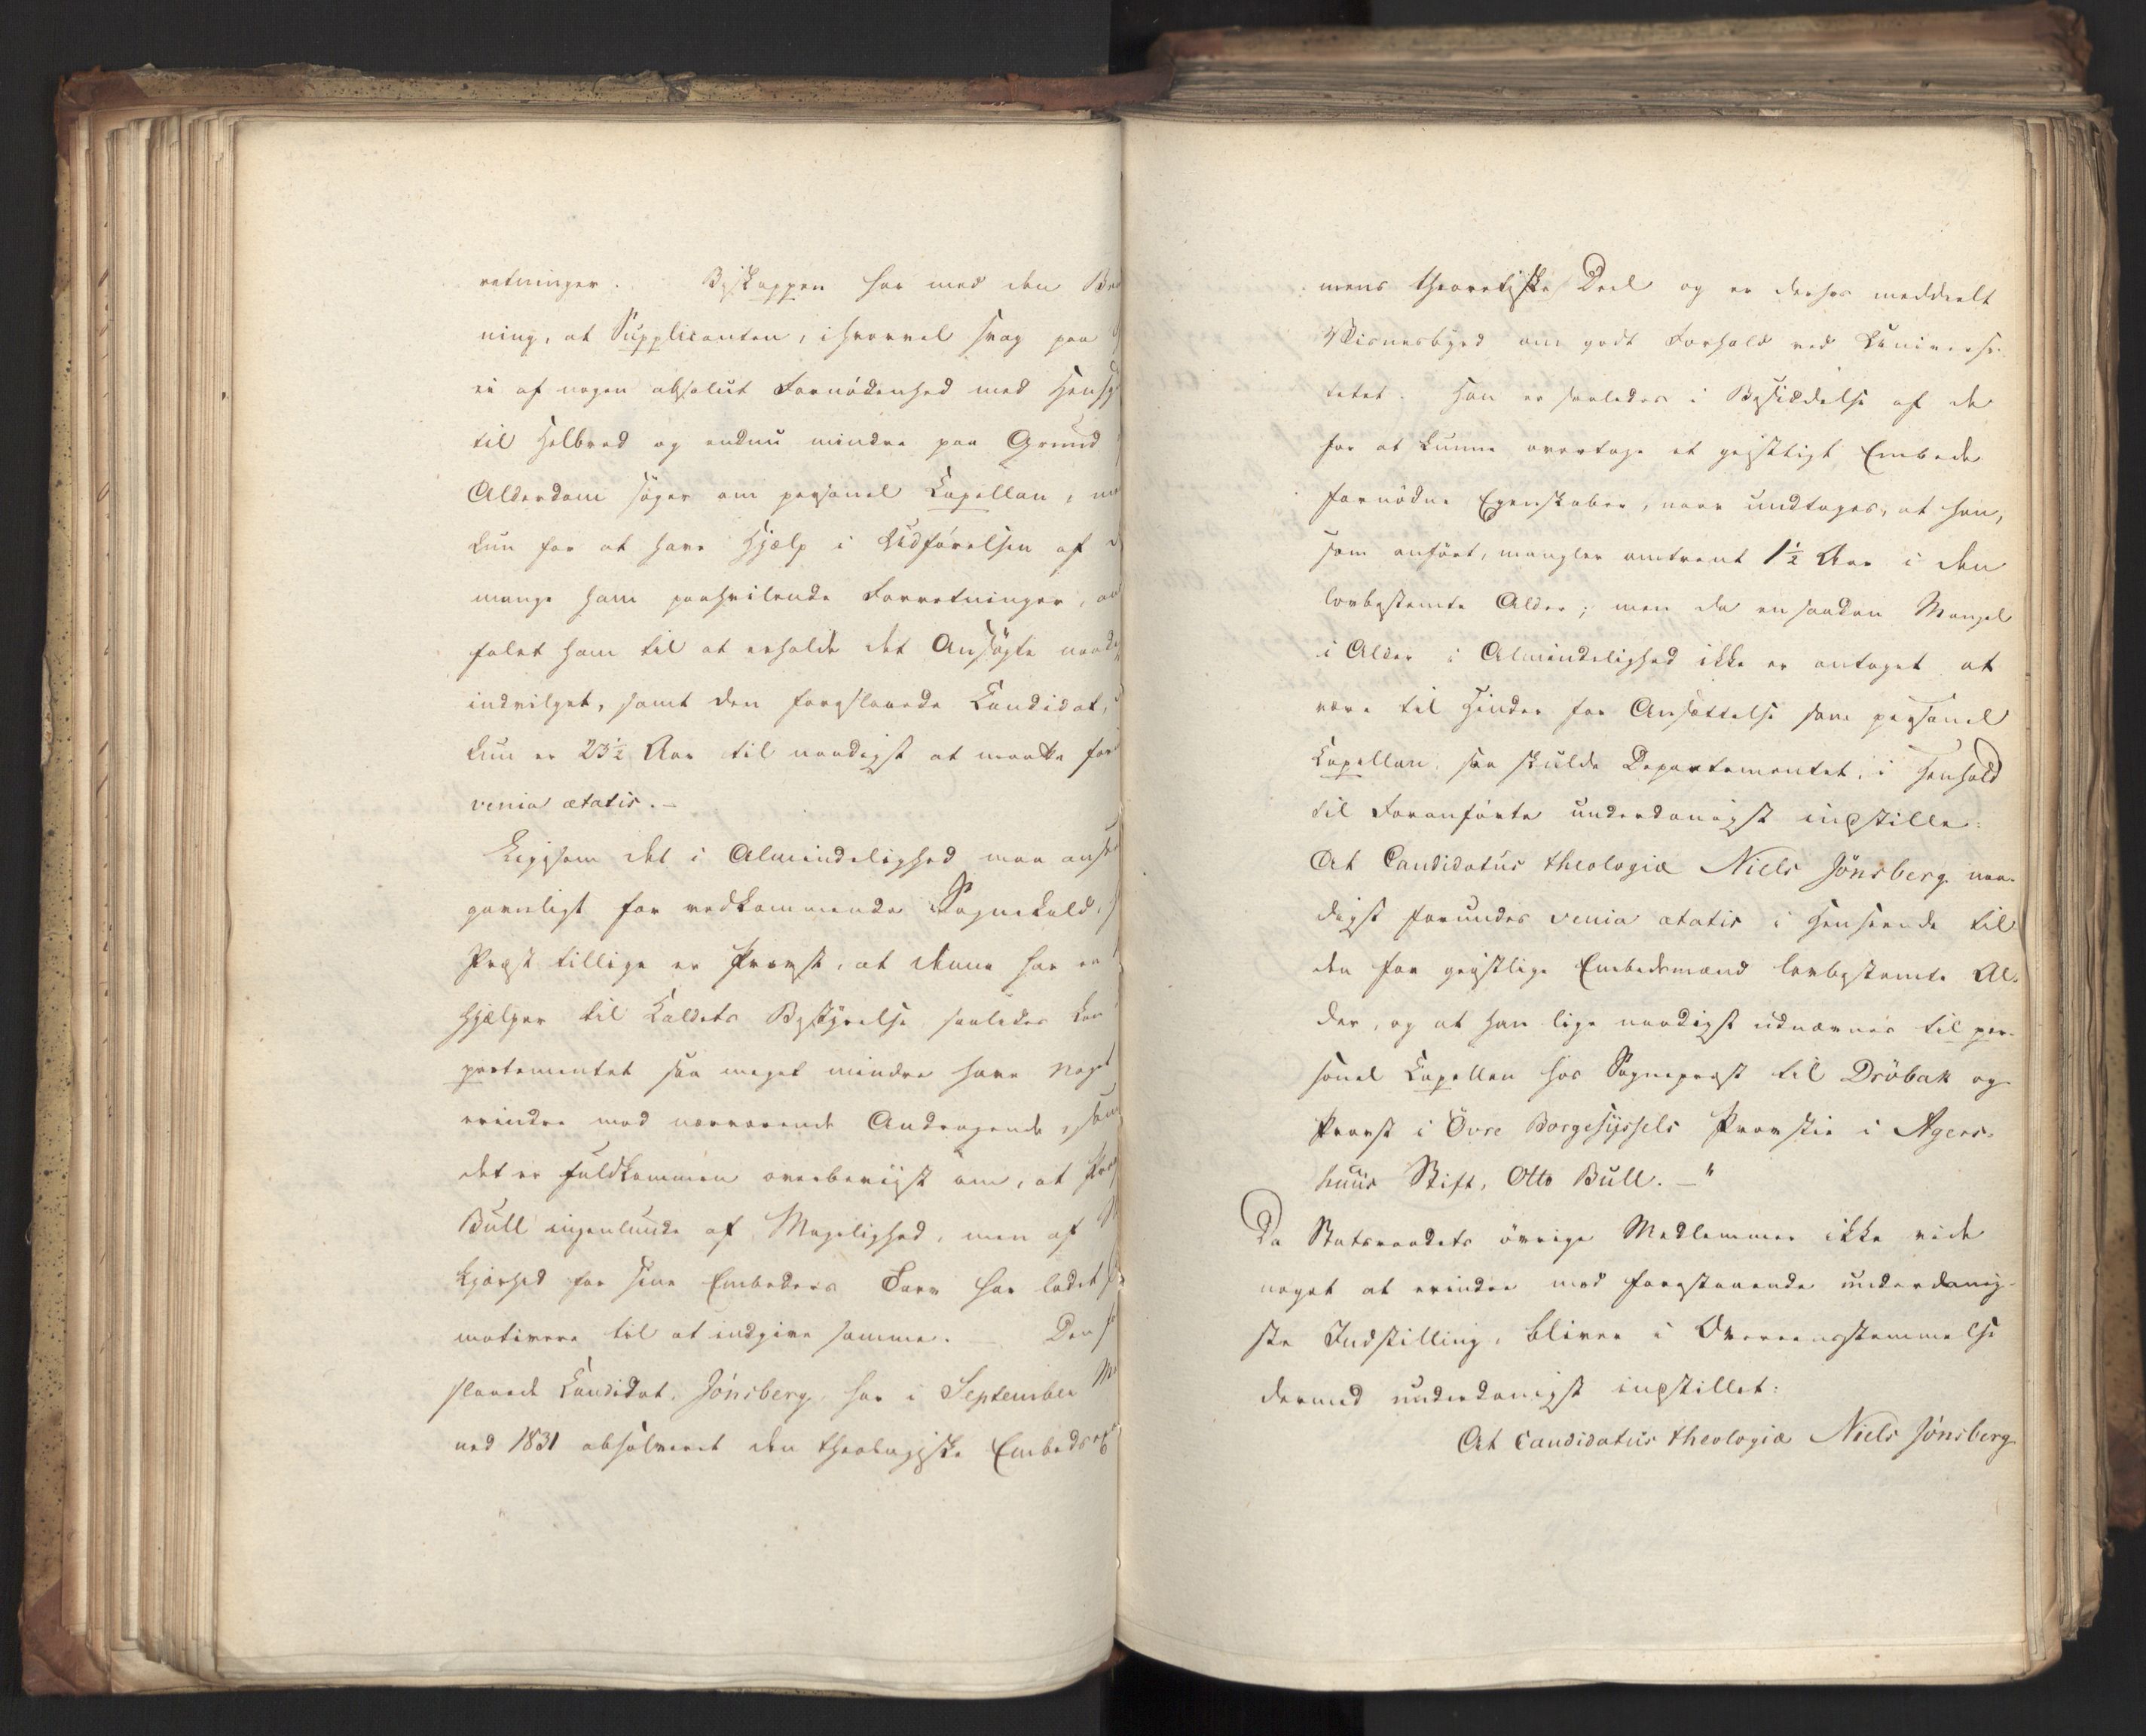 retninger. Biskoppen har med den Be
ning, at Supplicanten, ihvorvel svag paa
ei af nogen absolut Fornödenhed med Hensy
til Helbred og endnu mindre paa Grund
Alderdom söger om personel Capellan, me
kun for at have Hjælp i Udförelsen af
mange ham paahvilende Forretninger, an
falet ham til at erholde det Ansögte naadi
indvilget, samt den foreslaaede Candidat,
kun er 23½ Aar til naadigst at maatte for
venia ætatis. —
Ligesom det i Almindelighed maa ansee
gavnligt for vedkommende Sognekald,
Præst tillige er Provst, at denne har en
Hjælper til Kaldets Bestyrelse, saaledes kan
partementet saa meget mindre have Noget
erindre mod nærværende Andragende, som
det er fuldkommen overbeviist om, at Prov
Bull ingenlunde af Magelighed, men af
kjærhed for sine Embeders Tarv har ladet
motivere til at indgive samme. Den
slaaede Candidat, Jönsberg, har i September
ned 1831 absolveret den theologiske Embeds
mens theoretiske Deel og er derhos meddeelt
Vidnesbyrd om godt Forhold ved Universi-
tetet. Han er saaledes i Besiddelse af de
for at kunne overtage et geistligt Embede
fornödne Egenskaber, naar undtages, at han,
som anfört, mangler omtrent 1½ Aar i den
lovbestemte Alder; men da en saadan Mangel
i Alder i Almindelighed ikke er antaget at
være til Hinder for Ansættelse som personel
Capellan, saa skulde Departementet, i Henhold
til Foranförte underdanigst indstille:
At Candidatus theologiæ Niels Jönsberg naa-
digst forundes venia ætatis i Henseende til
den for geistlige Embedsmænd lovbestemte Al-
der, og at han lige naadigst udnævnes til per-
sonel Capellan hos Sognepræst til Dröbak og
Provst i Övre Borgesyssels Provstie i Agers-
huus Stift, Otto Bull. — "
Da Statsraadets övrige Medlemmer ikke vide
noget at erindre mod forestaaende underdanig-
ste Indstilling, bliver i Overeensstemmelse
dermed underdanigst indstillet:
At Candidatus theologiæ Niels Jönsberg